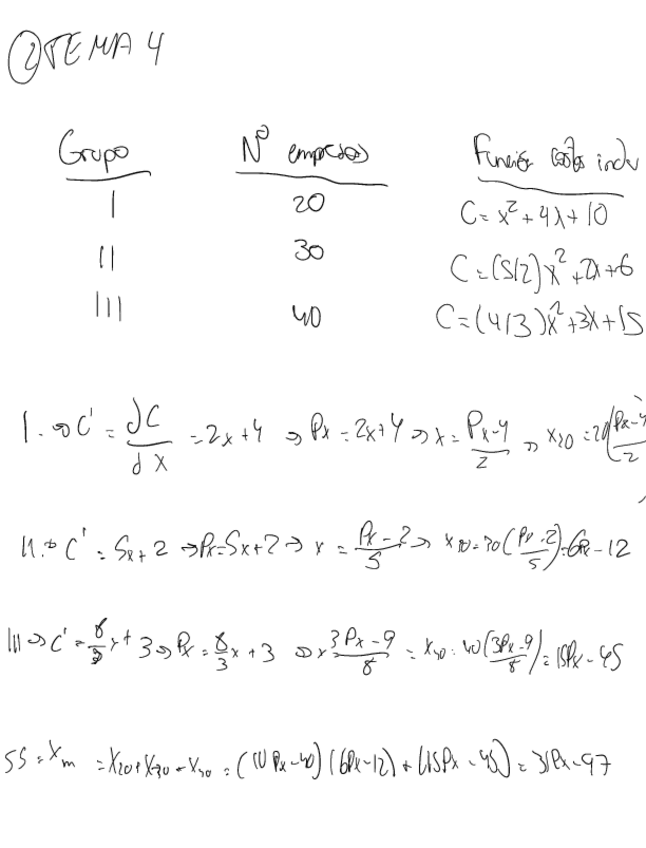 ② TEMA 4
Grupo Nº empresas Función costes indiv
I 20 C = x² + 4x + 10
II 30 C = (5/2)x² + 2x + 6
III 40 C = (4/3)x² + 3x + 15
I. ⇒ C' = dC/dX = 2x + 4 ⇒ Px = 2x + 4 ⇒ x = Px-4/2 ⇒ X20 = 20(Px-4/2
II. ⇒ C' = 5x + 2 ⇒ Px = 5x + 2 ⇒ x = Px-2/5 ⇒ X30 = 30(Px-2/5) = 6Px - 12
III ⇒ C' = 8/3 x + 3 ⇒ Px = 8/3 x + 3 ⇒ x 3Px-9/8 = X40 = 40(3Px-9/8) = 15Px - 45
SS = Xm = X20 + X30 + X40 = (10Px-40) (6Px-12) + (15Px-45) = 31Px-97